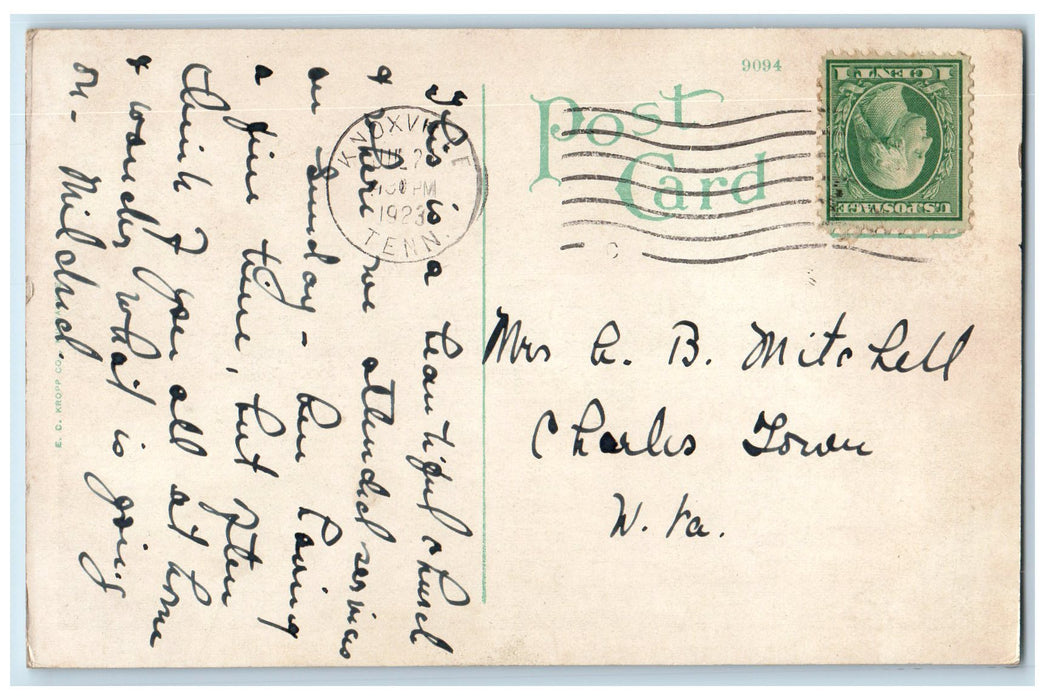 9094
Post
Card
1 CENT 1
U.S. POSTAGE
KNOXVILLE
1923
TENN.
This is a beautiful church
& where we attended services
on Sunday - Am having
a fine time, but often
think of you all at home
& wonder what is going
on - Mildred.
Mrs B. Mitchell
Charles Town
W. Va.
E. C. KROPP CO.